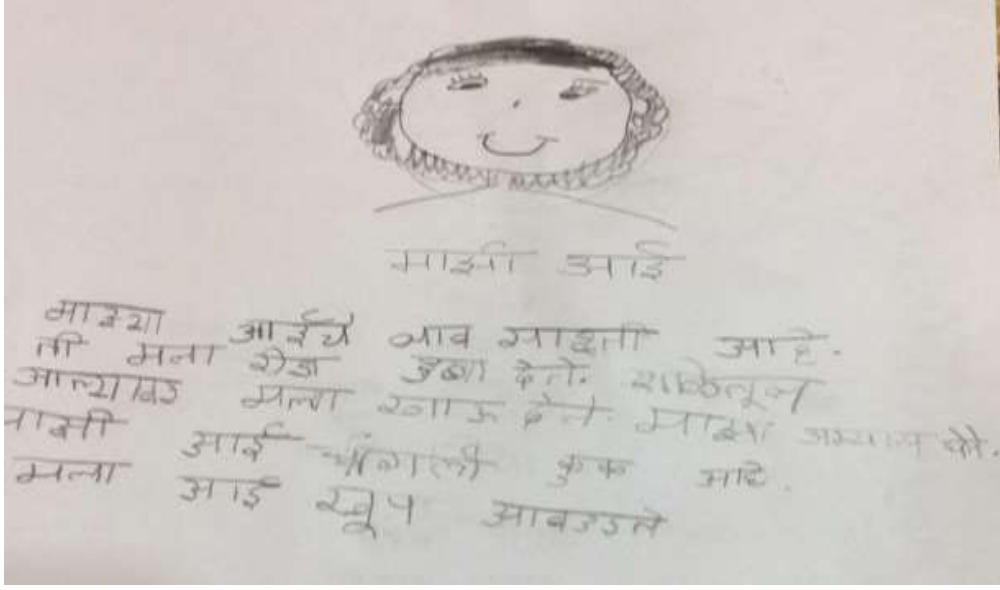 माझी आई
माझ्या आईचे नाव आहे.
ती मला रोज डबा देते. शाळेतून
आल्यावर मला खाऊ देते. माझा अभ्यास घेते.
माझी आई चांगली कुक आहे.
मला आई खूप आवडते